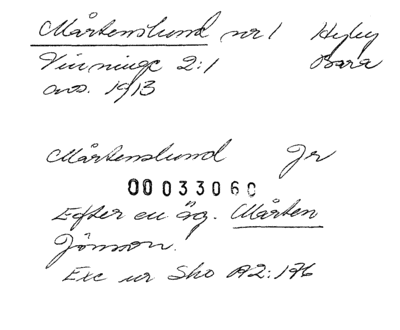 Mårtenslund nr 1 Hyby
Vinninge 2:1 Bara
avs. 1913
Mårtenslund Jr
0003306
Efter en äg. Mårten
Jönsson.
Exc ur Sko A2:176